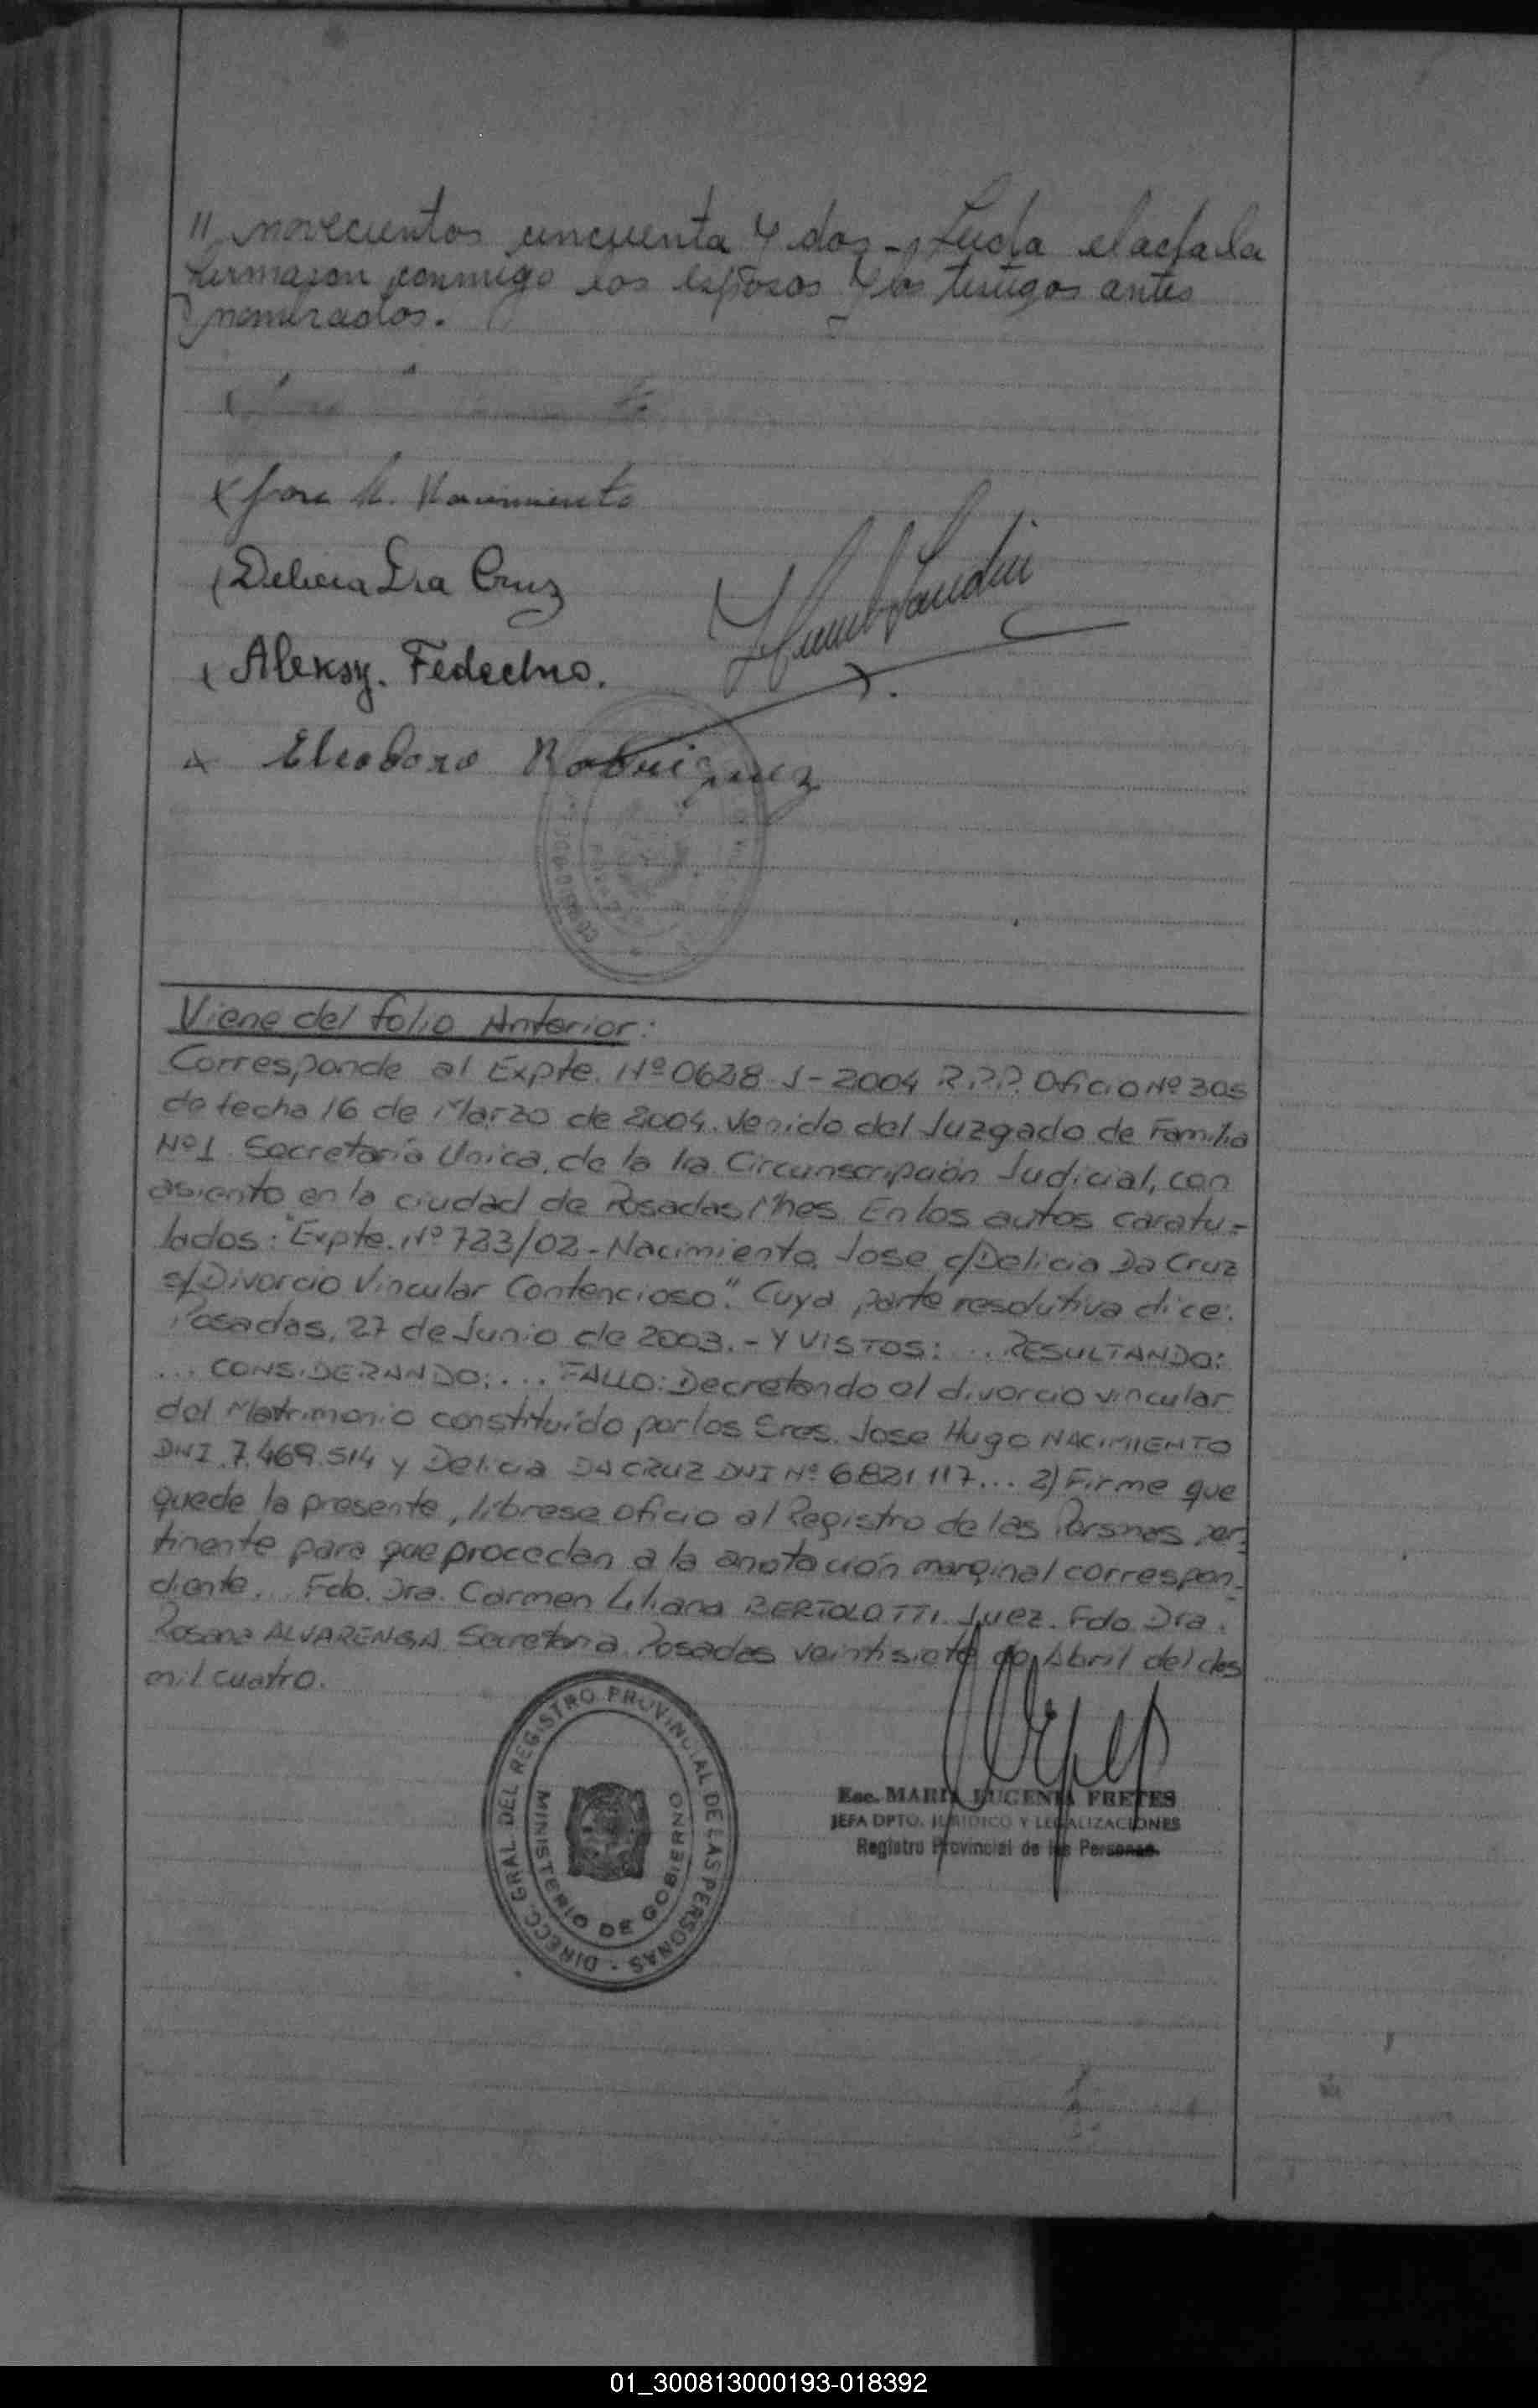 " novecientos cincuenta y dos - Leída el acta la
firmaron conmigo los esposos y los testigos antes
nombrados.
x Jose H. Nacimiento
Delicia Da Cruz
Aleksy. Fedechno.
x Eleodoro Rodriguez
Viene del folio Anterior:
Corresponde al Expte. Nº 0628-J-2004 R.P.P. Oficio Nº 305
de fecha 16 de Marzo de 2004. Venido del Juzgado de Familia
Nº1 Secretaría Unica, de la 1ra Circunscripción Judicial, con
asiento en la ciudad de Posadas Mnes. En los autos caratu-
lados: "Expte. Nº 723/02 - Nacimiento Jose c/Delicia Da Cruz
s/Divorcio Vincular Contencioso". Cuya parte resolutiva dice:
Posadas, 27 de Junio de 2003. - Y VISTOS: ... RESULTANDO:
... CONSIDERANDO: ... FALLO: Decretando el divorcio vincular
del Matrimonio constituído por los Sres. Jose Hugo NACIMIENTO
DNI 7.469.514 y Delicia DA CRUZ DNI Nº 6821117... 2) Firme que
quede la presente, líbrese oficio al Registro de las Personas per-
tinente para que procedan a la anotación marginal correspon-
diente. Fdo. Dra. Carmen Liliana BERTOLOTTI. Juez. Fdo Dra.
Rosana ALVARENGA Secretaria. Posadas veintisiete de Abril del dos
mil cuatro.
DIRECC. GRAL. DEL REGISTRO PROVINCIAL DE LAS PERSONAS -
MINISTERIO DE GOBIERNO
Esc. MARIA EUGENIA FRETES
JEFA DPTO. JURIDICO Y LEGALIZACIONES
Registro Provincial de las Personas
01_300813000193-018392